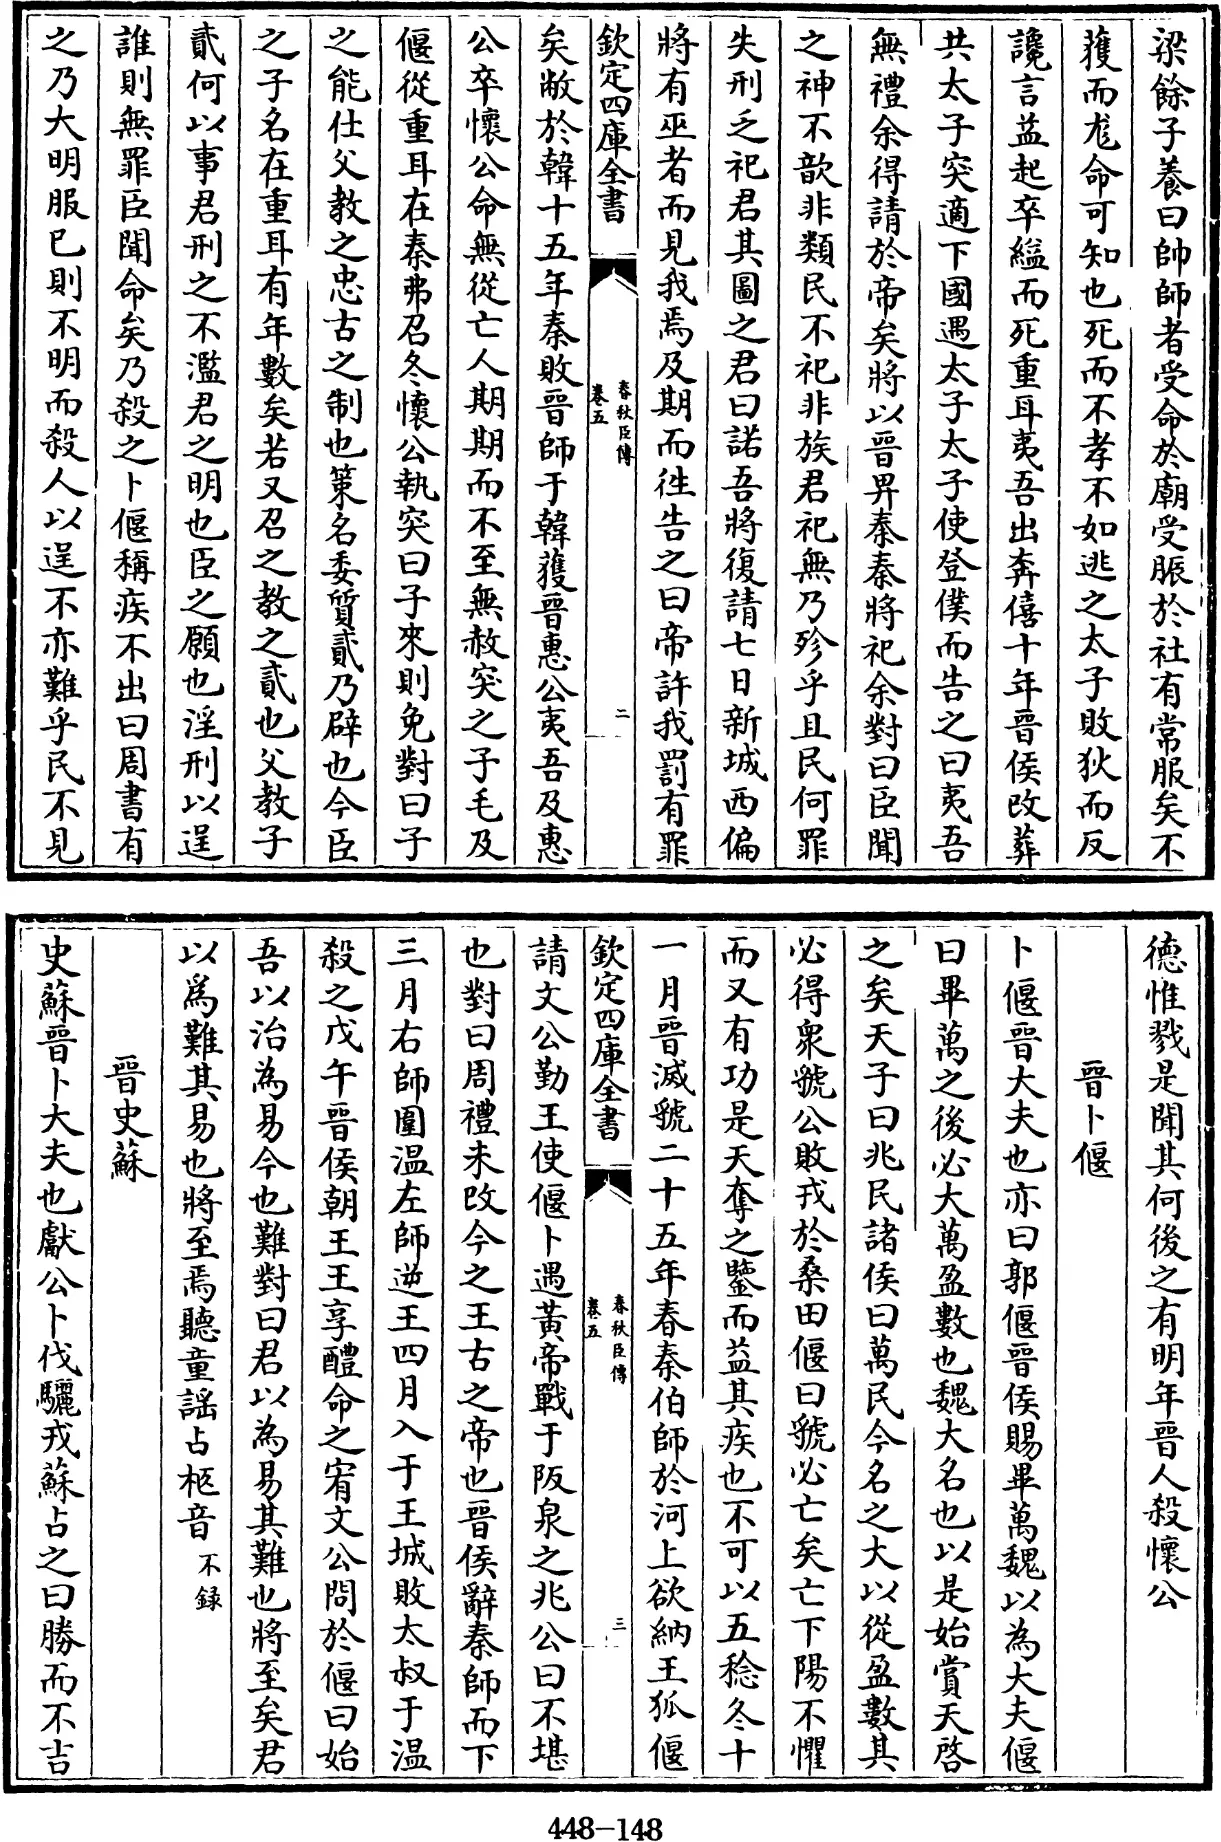 梁餘子養曰帥師者受命於廟受脤於社有常服矣不
獲而尨命可知也死而不孝不如逃之太子敗狄而反
讒言益起卒縊而死重耳夷吾出奔僖十年晉侯改葬
共太子突適下國遇太子太子使登僕而告之曰夷吾
無禮余得請於帝矣將以晉畀秦秦將祀余對曰臣聞
之神不歆非類民不祀非族君祀無乃殄乎且民何罪
失刑乏祀君其圖之君曰諾吾將復請七日新城西偏
將有巫者而見我焉及期而徃告之曰帝許我罰有罪
欽定四庫全書
春秋臣傳
卷五
二
矣敝於韓十五年秦敗晉師于韓獲晉惠公夷吾及惠
公卒懷公命無從亡人期期而不至無赦突之子毛及
偃從重耳在秦弗召冬懷公執突曰子來則免對曰子
之能仕父教之忠古之制也策名委質貳乃辟也今臣
之子名在重耳有年數矣若又召之教之貳也父教子
貳何以事君刑之不濫君之明也臣之願也淫刑以逞
誰則無罪臣聞命矣乃殺之卜偃稱疾不出曰周書有
之乃大明服已則不明而殺人以逞不亦難乎民不見
德惟戮是聞其何後之有明年晉人殺懷公
晉卜偃
卜偃晉大夫也亦曰郭偃晉侯賜畢萬魏以為大夫偃
曰畢萬之後必大萬盈數也魏大名也以是始賞天啓
之矣天子曰兆民諸侯曰萬民今名之大以從盈數其
必得衆虢公敗戎於桑田偃曰虢必亡矣亡下陽不懼
而又有功是天奪之鑒而益其疾也不可以五稔冬十
一月晉滅虢二十五年春秦伯師於河上欲納王狐偃
欽定四庫全書
春秋臣傳
卷五
三
請文公勤王使偃卜遇黃帝戰于阪泉之兆公曰不堪
也對曰周禮未改今之王古之帝也晉侯辭秦師而下
三月右師圍溫左師逆王四月入于王城敗太叔于溫
殺之戊午晉侯朝王王享醴命之宥文公問於偃曰始
吾以治為易今也難對曰君以為易其難也將至矣君
以爲難其易也將至焉聽童謡占柩音不録
晉史蘇
史蘇晉卜大夫也獻公卜伐驪戎蘇占之曰勝而不吉
448-148